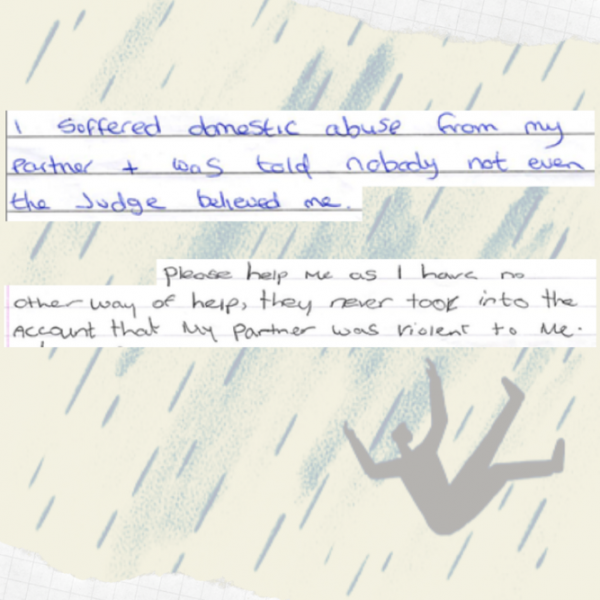 I Soffered domestic abuse from my
partner + was told nobody not even
the Judge believed me.
Please help me as I have no
other way of help, they never took into the
Account that My partner was violent to Me.